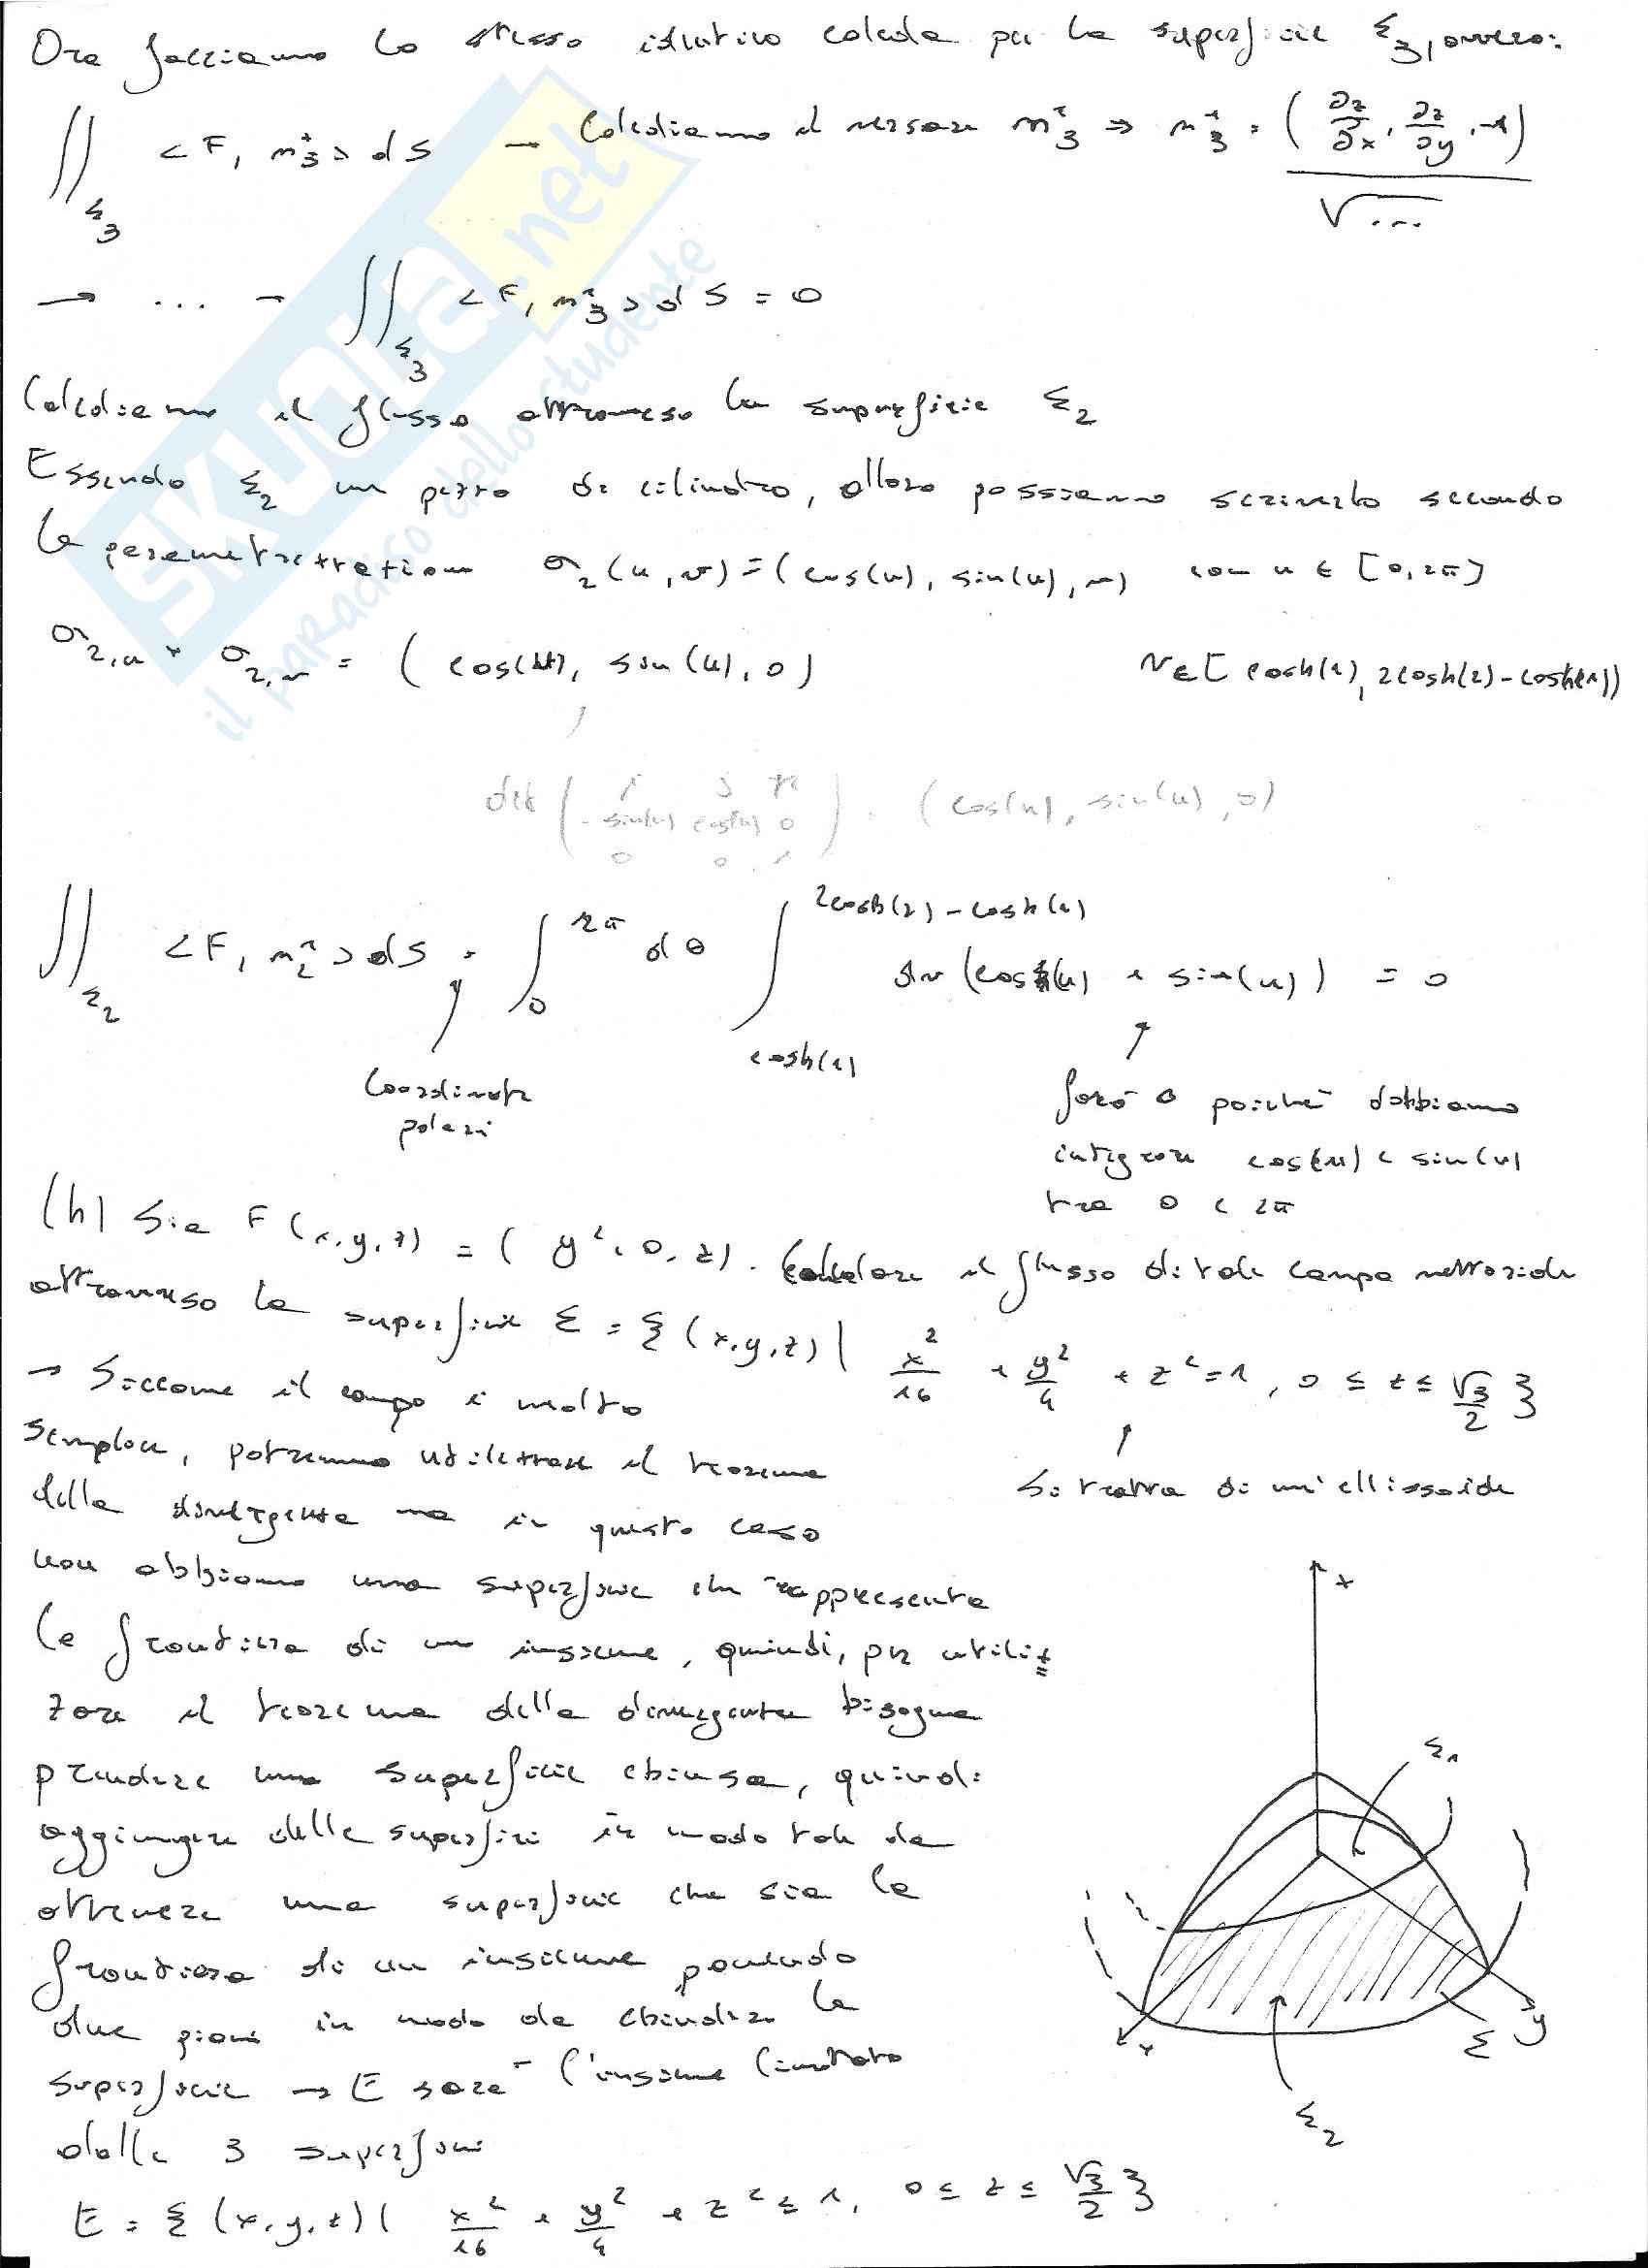 Ora facciamo lo stesso identico calcolo per la superficie Σ₃, ovvero:
∬_Σ₃ <F, n⃗₃> dS → Calcoliamo il versore n⃗₃ ⇒ n⃗₃ = (∂z/∂x, ∂z/∂y, -1) / √...
→ ... → ∬_Σ₃ <F, n⃗₃> dS = 0
Calcoliamo il flusso attraverso la superficie Σ₂
Essendo Σ₂ un pezzo di cilindro, allora possiamo scriverlo secondo
la parametrizzazione σ₂(u,v) = (cos(u), sin(u), v) con u ∈ [0, 2π]
σ₂,u × σ₂,v = (cos(u), sin(u), 0) v ∈ [cosh(1), 2cosh(2)-cosh(1)]
det ( i j k / -sin(u) cos(u) 0 / 0 0 1 ) = (cos(u), sin(u), 0)
∬_Σ₂ <F, n⃗₂> dS = ∫₀^2π dθ ∫_cosh(1)^2cosh(2)-cosh(1) dv (cos(u) + sin(u)) = 0
Coordinate
polari
farà 0 poiché dobbiamo
integrare cos(u) e sin(u)
tra 0 e 2π
(h) Sia F(x,y,z) = (y², 0, z). Calcolare il flusso di tale campo vettoriale
attraverso la superficie Σ = {(x,y,z) | x²/16 + y²/4 + z² = 1, 0 ≤ z ≤ √3/2}
Si tratta di un'ellissoide
→ Siccome il campo è molto
semplice, potremmo utilizzare il teorema
della divergenza ma in questo caso
non abbiamo una superficie che rappresenta
la frontiera di un insieme, quindi, per utiliz=
zare il teorema della divergenza bisogna
prendere una superficie chiusa, quindi
aggiungere delle superfici in modo tale da
ottenere una superficie che sia la
frontiera di un insieme ponendo
due piani in modo da chiudere la
superficie → E sarà l'insieme limitato
dalle 3 superfici
E = {(x,y,z) | x²/16 + y²/4 + z² ≤ 1, 0 ≤ z ≤ √3/2}
Σ₁
y
x
Σ
Σ₂
SKUOLA.net
il paradiso dello studente